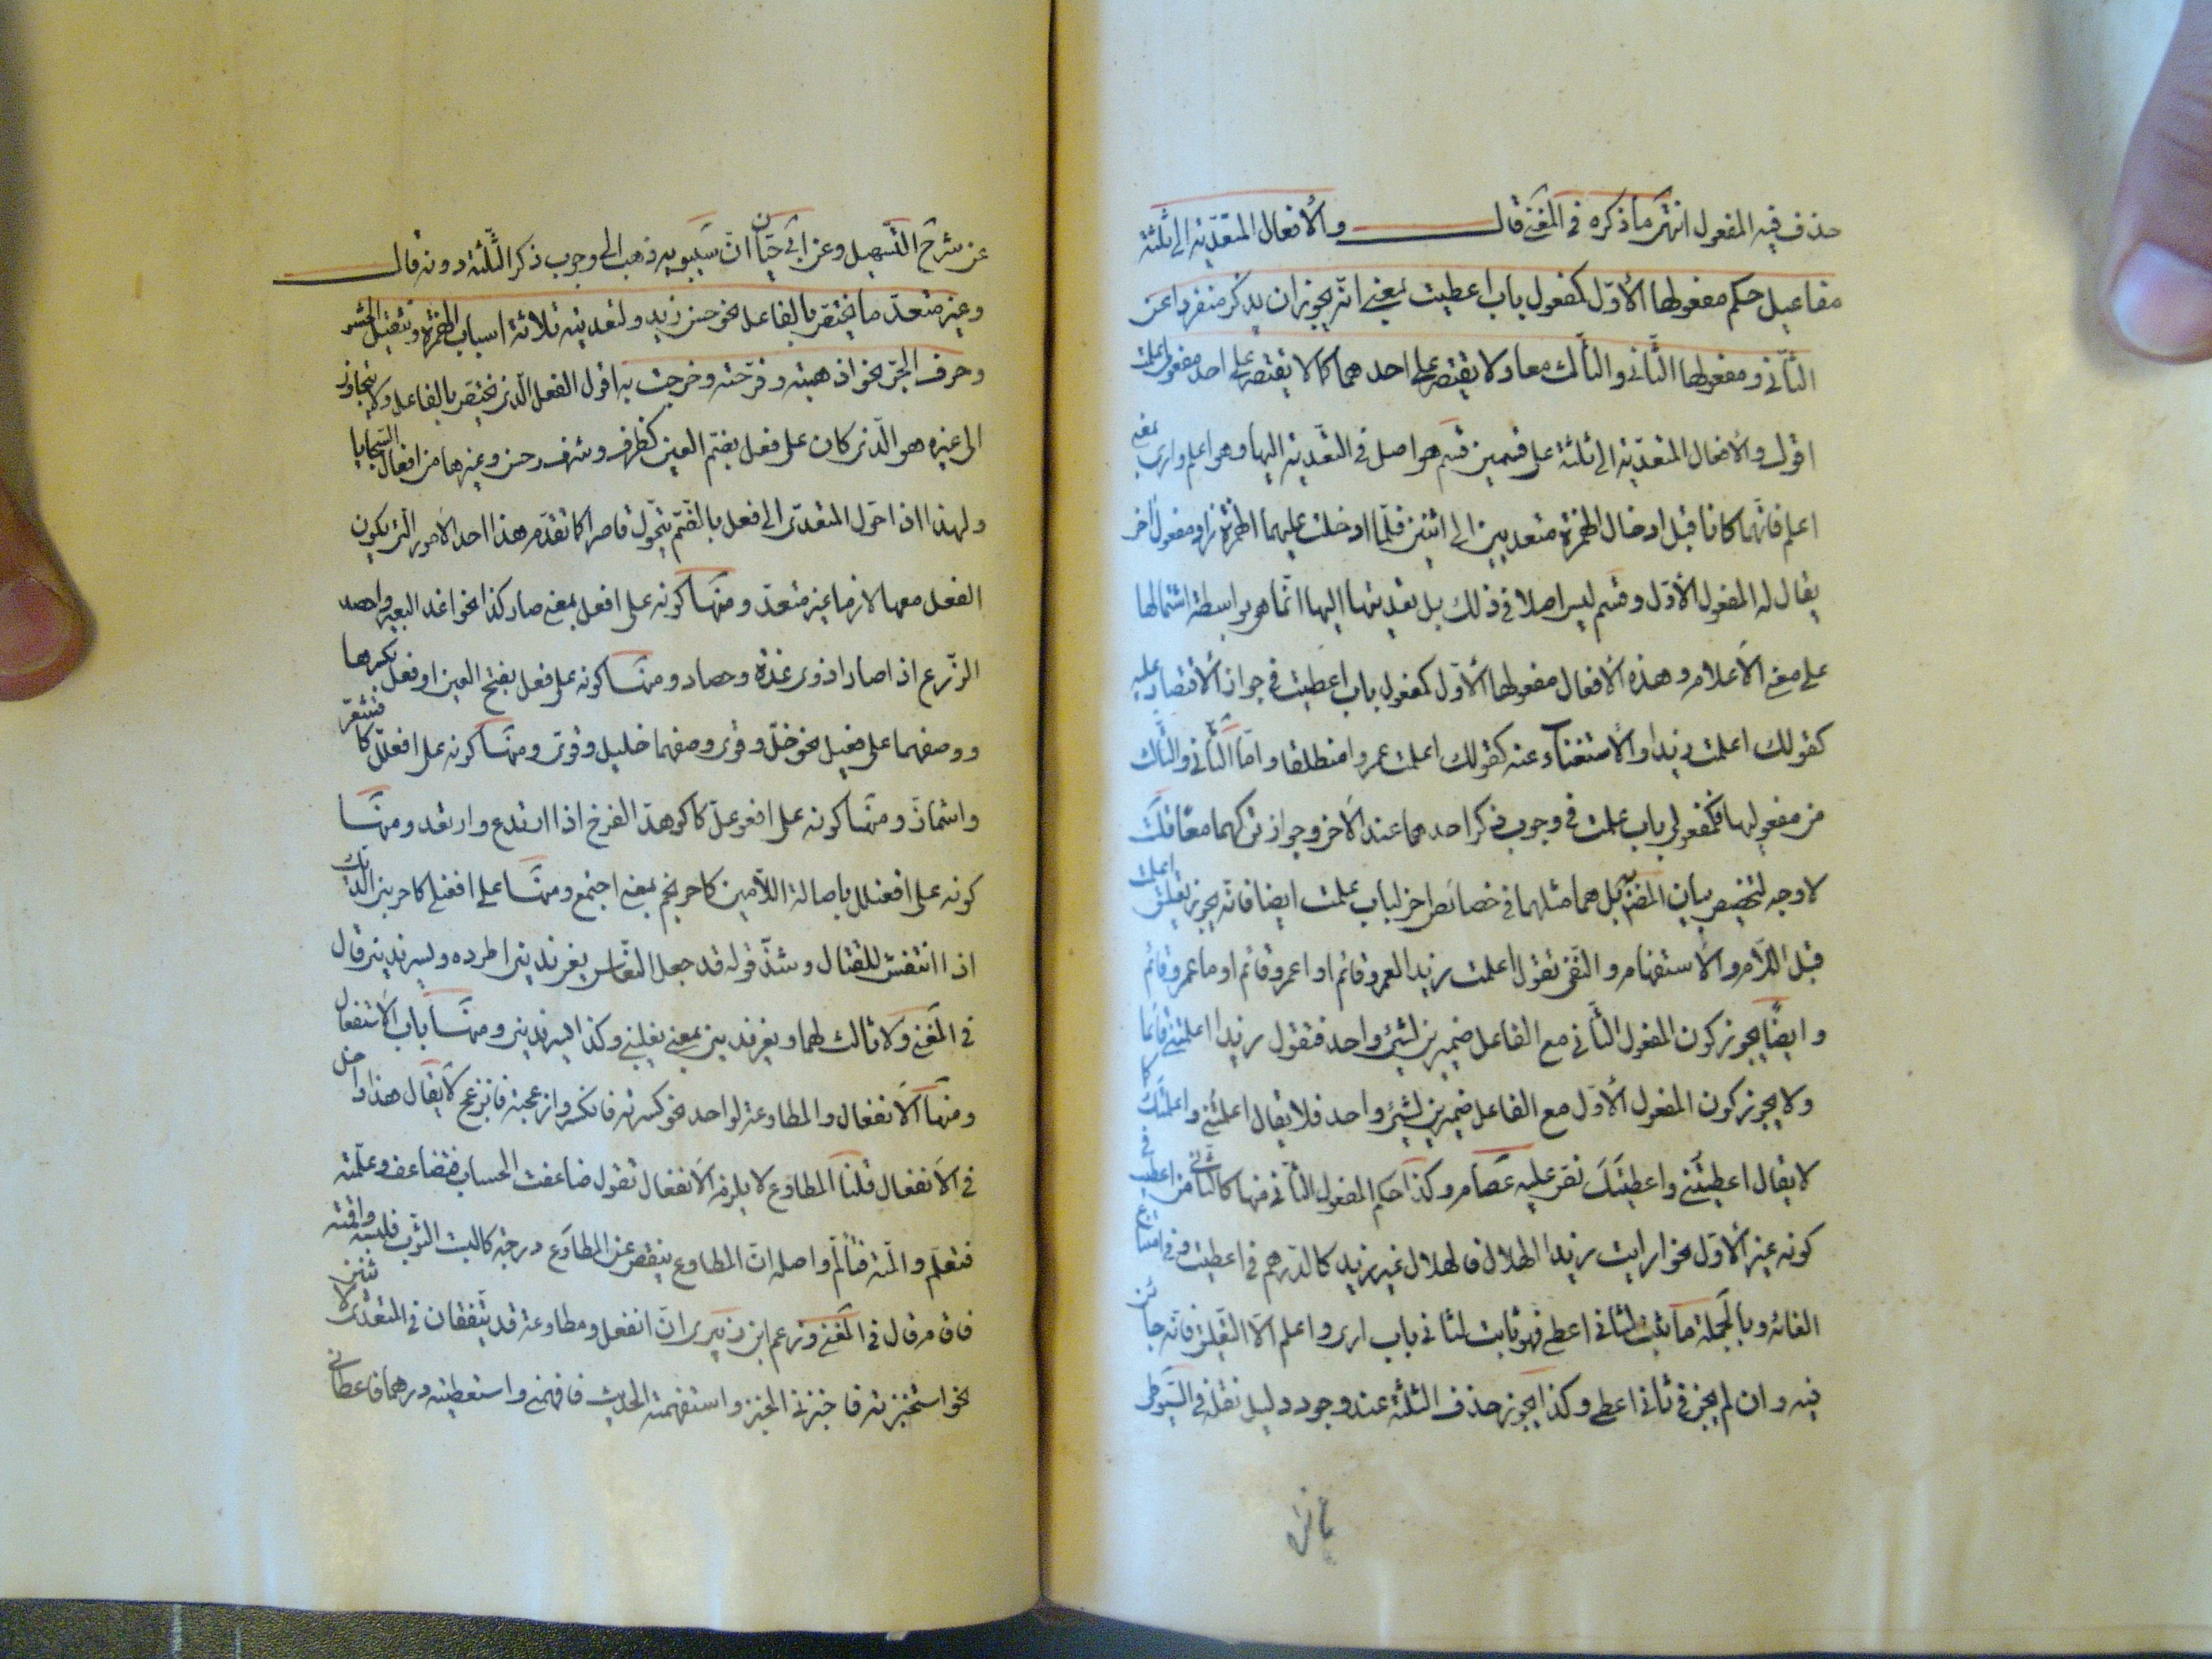 حذف فيه المفعول انتهى ما ذكره في المغنى قال والأفعال المتعدّية الى ثلثة
مفاعيل حكم مفعولها الأوّل كمفعول باب اعطيت بمعنى انّه يجوز ان يذكر منفردا عن
الثّاني ومفعولها الثّاني والثّالث معا ولا يقتصر على احدهما كما لا يقتصر على احد مفعولى علمت
اقول والأفعال المتعدّية الى ثلثة على قسمين قسم هو اصل في التّعدية اليها وهو اعلم وارى بمعنى
اعلم فانّهما كانا قبل ادخال الهمزة متعديين الى اثنين فلمّا ادخلت عليهما الهمزة زاد مفعول آخر
يقال له المفعول الأوّل وقسم ليس اصلا في ذلك بل تعديتها اليها انّما هو بواسطة اشتمالها
على معنى الأعلام وهذه الأفعال مفعولها الأوّل كمفعول باب اعطيت في جواز الأقتصار عليه
كقولك اعلمت زيدا والأستغناء عنه كقولك اعلمت عمروا منطلقا وامّا الثّاني والثّالث
من مفعوليها فكمفعولى باب علمت في وجوب ذكر احدهما عند الآخر وجواز تركهما معا
لا وجه لتخصيص بيان المص بل هما مثلهما في خصائص اخر لباب علمت ايضا فانّه يجوز تعليق اعلمت
قبل اللّام والأستفهام والنّفى تقول اعلمت زيدا لعمرو قائم او اعمرو قائم او ما عمرو قائم
وايضًا يجوز كون المفعول الثّاني مع الفاعل ضميرين لشئ واحد فتقول زيدا اعلمتنى قائما
ولا يجوز كون المفعول الأوّل مع الفاعل ضميرين لشئ واحد فلا يقال اعلمتنى واعلمتك كما
لا يقال اعطيتنى واعطيتك نصّ عليه عصام وكذا حكم المفعول الثّاني منها كالثّاني من اعطيت في
كونه غير الأوّل نحو اريت زيدا الهلال فالهلال غير زيد كالدّرهم في اعطيت وفي امتناع
الغائه وبالجملة ما يثبت لثاني اعطى فهو ثابت لثاني باب ارى واعلم الّا التّعليق فانّه جائز
فيه وان لم يجز في ثاني اعطى وكذا يجوز حذف الثلثة عند وجود دليل نقله في السّيوطى
عن شرح التّسهيل وعن ابي حيّان انّ سيبويه ذهب الى وجوب ذكر الثّلثة دونه قال
وغير متعدّ ما يختصّ بالفاعل نحو حسن زيد ولتعديته ثلاثة اسباب الهمزة وتثقيل الحشو
وحرف الجرّ نحو اذهبته وفرّحته وخرجت به اقول الفعل الّذى يختصّ بالفاعل ولا يتجاوز
الى غيره هو الّذى كان على فعل بضمّ العين كظرف وشرف وحسن وغيرها من افعال السّجايا
ولهذا اذا حوّل المتعدّى الى فعل بالضّم يتحوّل قاصرا كما تقدّم هذا احد الأمور الّتى يكون
الفعل معها لازما غير متعدّ ومنها كونه على افعل بمعنى صار كذا نحو اغدّ البعير واحصد
الزّرع اذا صارا ذوى غدّة وحصاد ومنها كونه على فعل بفتح العين او فعل بكسرها
ووصفهما على فعيل نحو خلّ وقوى وصفهما خليل وقوىّ ومنها كونه على افعللّ كاقشعرّ
واشمأزّ ومنها كونه على افوعلّ كاكوهدّ الفرخ اذا ارتدع وارتعد ومنها
كونه على افعنلل باصالة اللّامين كاحرنجم بمعنى اجتمع ومنها على افعنلى كاحرنبى الدّيك
اذا انتفش للقتال وشذّ قوله قد جعل النّعاس يغرندينى اطرده ويسرندينى قال
في المغنى ولا ثالث لهما ويغرندينى بمعنى يغلبنى وكذا يسرندينى ومنها باب الأستفعال
ومنها الأنفعال والمطاوعة لواحد نحو كسرته فانكسر وازعجته فانزعج لا يقال هذا داخل
في الأنفعال قلنا المطاوع لا يلزم الأنفعال تقول ضاعفت الحساب فتضاعف وعلّمته
فتعلّم والّمته فتألّم واصله انّ المطاوع ينقص عن المطاوَع درجة كالبست الثّوب فلبسه واقمته
فقام قال في المغنى وزعم ابن برّى انّ انفعل ومطاوعه قد يتّفقان في المتعدّى لاثنين
نحو استخبرته فاخبرني الخبر واستفهمته الحديث فافهمني واستعطيته درهما فاعطاني